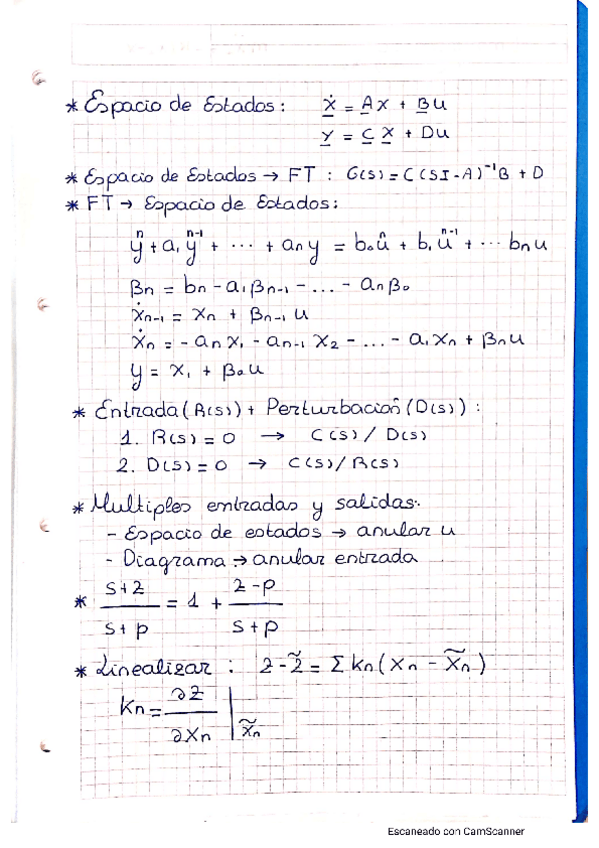 * Espacio de Estados: ẋ = A x + B u
y = C x + Du
* Espacio de Estados → FT : G(s) = C(SI-A)⁻¹B + D
* FT → Espacio de Estados:
yⁿ + a₁yⁿ⁻¹ + ... + aₙy = b₀uⁿ + b₁uⁿ⁻¹ + ... bₙu
βₙ = bₙ - a₁βₙ₋₁ - ... - aₙβ₀
ẋₙ₋₁ = xₙ + βₙ₋₁ u
ẋₙ = - aₙ x₁ - aₙ₋₁ x₂ - ... - a₁xₙ + βₙu
y = x₁ + β₀u
* Entrada (R(s)) + Perturbación (D(s)) :
1. R(s) = 0 → C(s) / D(s)
2. D(s) = 0 → C(s) / R(s)
* Multiples entradas y salidas.
- Espacio de estados → anular u
- Diagrama → anular entrada
* (s+z)/(s+p) = 1 + (z-p)/(s+p)
* Linealizar : z - z̃ = Σ kₙ (xₙ - x̃ₙ)
kₙ = ∂z/∂xₙ | x̃ₙ
Escaneado con CamScanner